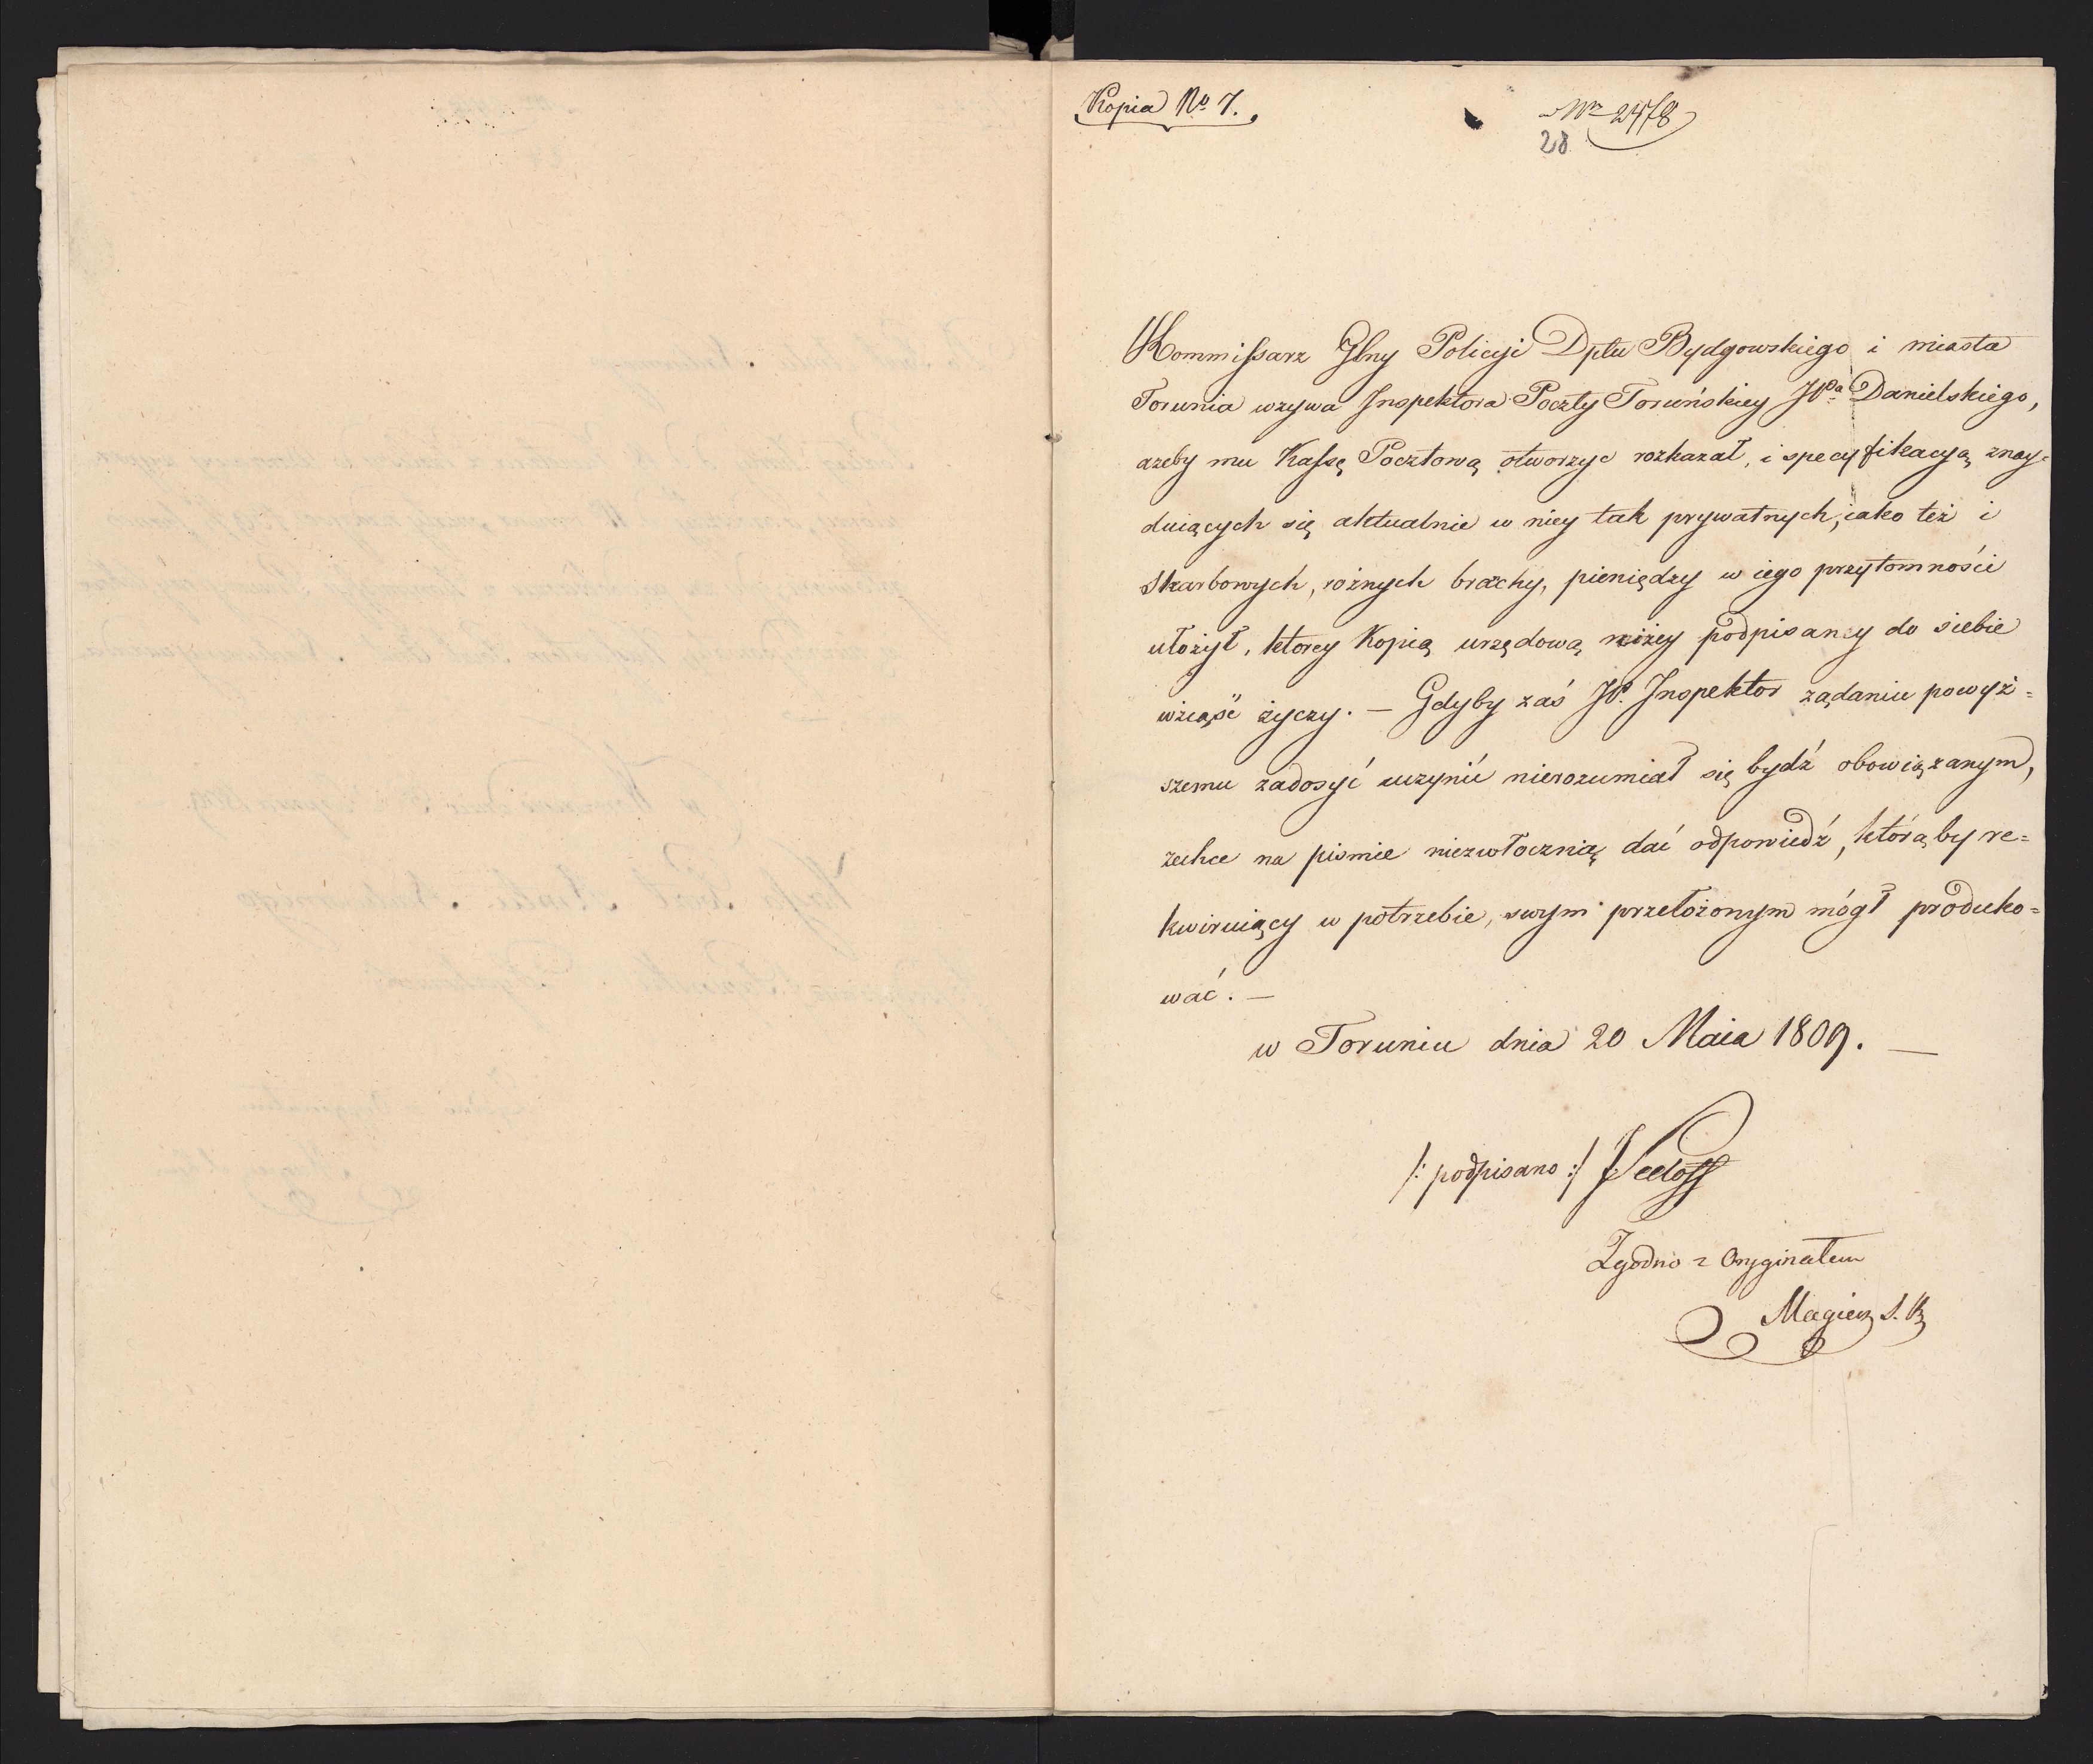 Kopia No 7.
Nro 2478
28
Kommissarz Glny Policyi Dptu Bydgowskiego i miasta
Torunia wzywa Inspektora Poczty Toruńskiey JPa Danielskiego,
azeby mu Kassę Pocztową otworzyc rozkazał, i specyfikacyą znay=
duiących się aktualnie w niey tak prywatnych, iako też i
Skarbowych, rożnych branchy, pieniędzy w iego przytomności
ułożył, ktorey Kopią urzędową niżey podpisany do siebie
wziąść życzy. — Gdyby zaś JP. Inspektor ządaniu powyż=
szemu zadosyć uczynić nierozumiał się bydź obowiązanym,
zechce na pismie niezwłocznią dać odpowiedź, którąby re=
kwiruiący w potrzebie, swym przełożonym mógł produko=
wać. —
w Toruniu dnia 20 Maia 1809. —
/: podpisano :/
Zgodno z Oryginałem
Magier S.